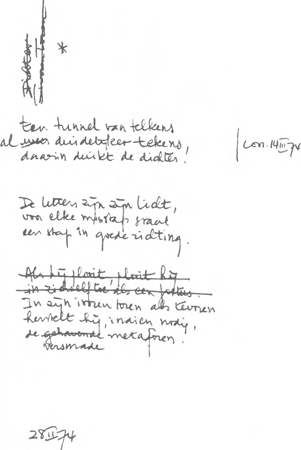 Dichter
ivoren toren
*
Een tunnel van telkens
al duidelijker tekens,
daarin duikt de dichter.
14 III 74
De letters zijn zijn licht,
van elke misstap staat
een stap in goede richting.
Als hij plooit, plooit hij
in zichzelf toe als een
In zijn ivoren toren als tevoren
herstelt hij, indien nodig,
de gehavende metaforen.
versmade
28 II 74